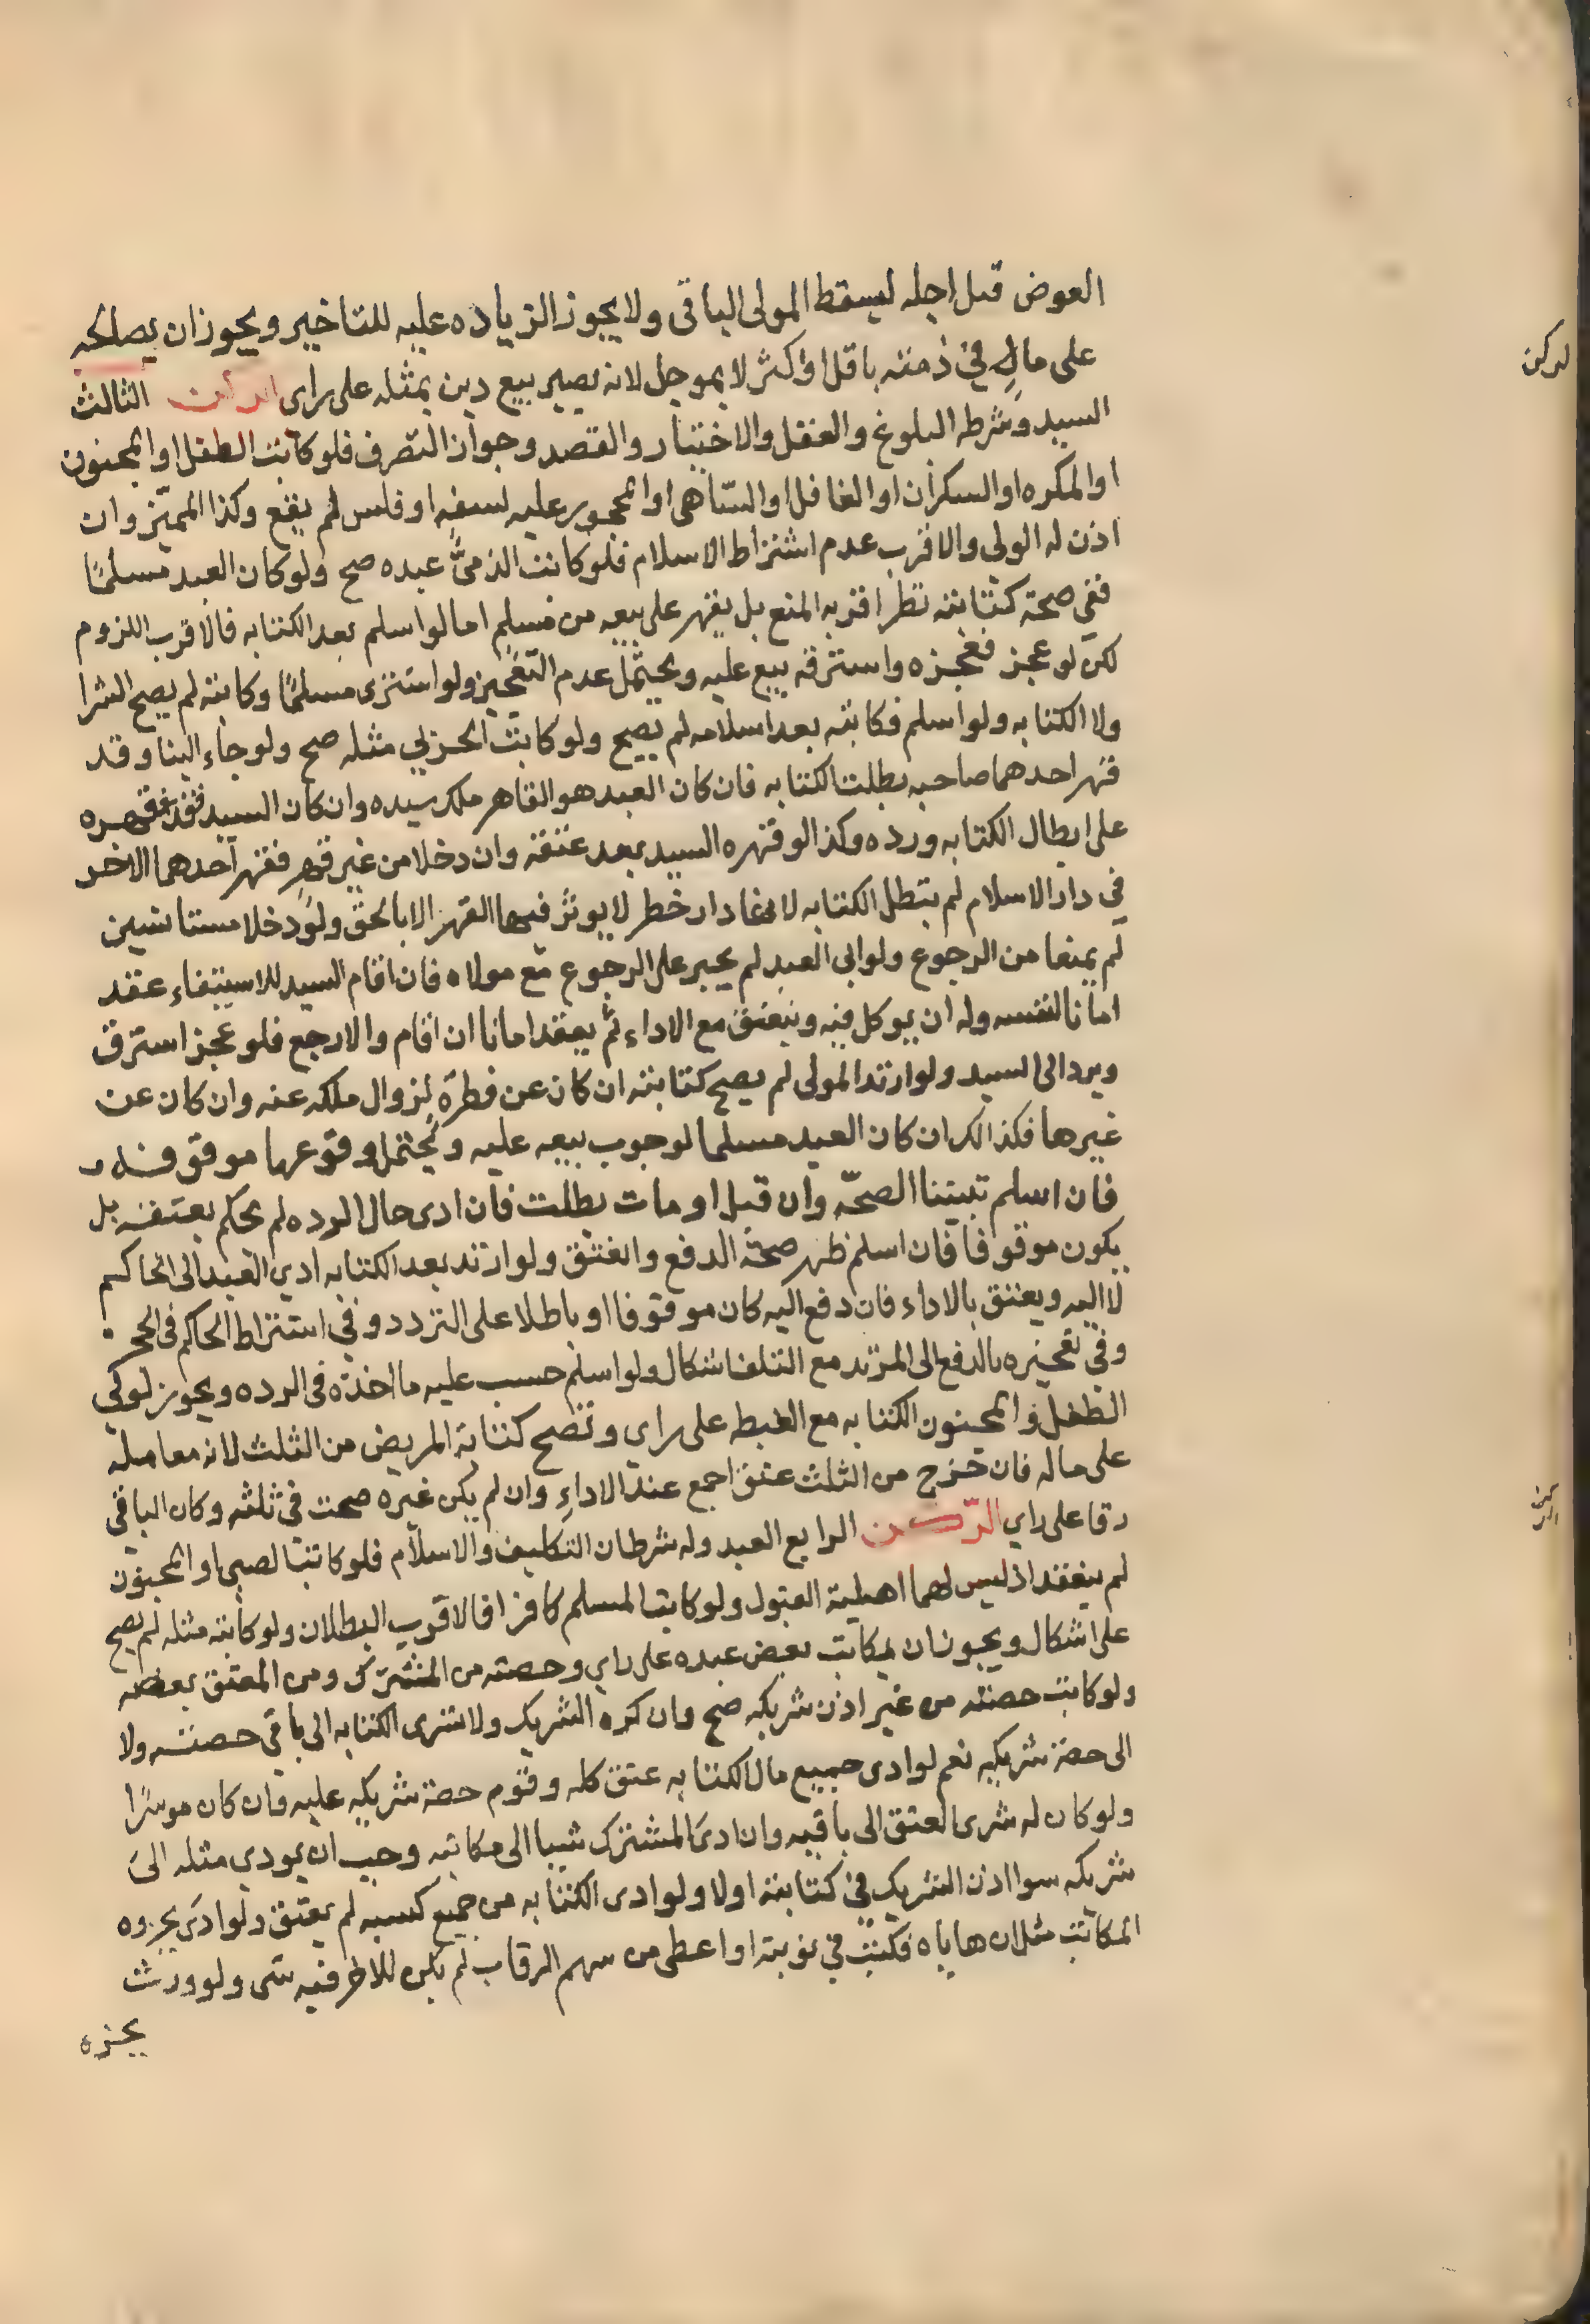 العوض قبل اجله ليسقط المولى الباقى ولا يجوز الزياده عليه للتاخير ويجوز ان يصالحه
على مالٍ فى ذمته باقل او اكثر لا بموجل لانه يصير بيع دين بمثله على راى الركن الثالث
السيد وشرطه البلوغ والعقل والاختيار والقصد وجواز التصرف فلو كاتب الطفل او المجنون
او المكره او السكران او الغافل او الساهى او المحجور عليه لسفه او فلس لم يقع وكذا المميّز وان
اذن له الولى والاقرب عدم اشتراط الاسلام فلو كاتب الذمىّ عبده صح ولو كان العبد مسلمًا
ففى صحة كتابته نظر اقربه المنع بل يقهر على بيعه من مسلم اما لو اسلم بعد الكتابه فالاقرب اللزوم
لكن لو عجز فعجزه واسترقه بيع عليه ويحتمل عدم التعجيز ولو اشترى مسلمًا وكاتبه لم يصح الشرا
ولا الكتابه ولو اسلم فكاتبه بعد اسلامه لم يصح ولو كاتب الحربي مثله صح ولو جاء الينا وقد
قهر احدهما صاحبه بطلت الكتابه فان كان العبد هو القاهر ملك سيده وان كان السيد فقد قهره
على ابطال الكتابه ورده وكذا لو قهره السيد بعد عتقه وان دخلا من غير قهر فقهر احدهما الاخر
في دار الاسلام لم تبطل الكتابه لانها دار خطر لا يوثر فيها القهر الا بالحق ولو دخلا مستامنين
لم يمنعا من الرجوع ولو ابى العبد لم يجبر على الرجوع مع مولاه فان اقام السيد للاستيفاء عقد
امانا لنفسه وله ان يوكل فيه ويعتق مع الاداء ثم يعقد امانا ان اقام والا رجع فلو عجز استرق
ويرد الى السيد ولو ارتد المولى لم يصح كتابته ان كان عن فطرة لزوال ملكه عنه وان كان عن
غيرها فكذالك ان كان العبد مسلما لوجوب بيعه عليه ويحتمل وقوعها موقوفه
فان اسلم تبيّنا الصحّه وان قتل او مات بطلت فان ادى حال الرده لم يحكم بعتقه بل
يكون موقوفا فان اسلم ظهر صحة الدفع والعتق ولو ارتد بعد الكتابه ادي العبد الى الحاكم
لا اليه ويعتق بالاداء فان دفع اليه كان موقوفا او باطلا على التردد وفي اشتراط الحاكم فى الحجر
وفي تعجيزه بالدفع الى المرتد مع التلف اشكال ولو اسلم حسب عليه ما اخذه فى الرده ويجوز لولي
الطفل والمجنون الكتابه مع الغبطه على راي وتصح كتابة المريض من الثلث لانه معامله
على ماله فان خرج من الثلث عتق اجمع عند الاداءِ وان لم يكن غيره صحت في ثلثه وكان الباقي
رقا على راي الرّكن الرابع العبد وله شرطان التكليف والاسلام فلو كاتب الصبى او المجنون
لم ينعقد اذ ليس لهما اهلية القبول ولو كاتب المسلم كافرا فالاقرب البطلان ولو كاتبه مثله لم يصح
على اشكال ويجوز ان يكاتب بعض عبده على راي وحصته من المشترك ومن المعتق بعضه
ولو كاتب حصته من غير اذن شريكه صح وان كره الشريك ولا تسرى الكتابه الى باقي حصته ولا
الى حصة شريكه نعم لو ادى جميع مال الكتابه عتق كله وقوم حصة شريكه عليه وان كان موسرًا
ولو كان له شرى العتق الى باقيه وان ادى المشترك شيبا الى مكاتبه وجب ان يودي مثله الى
شريكه سوا اذن الشريك في كتابته اولا ولو ادى الكتابه من جميع كسبه لم يعتق ولو ادى بجزوه
المكاتب مثل ان هاياه فكسب في نوبته او اعطى من سهم الرقاب لم يكن للاخر فيه شى ولو ورث
بجزه
لركن